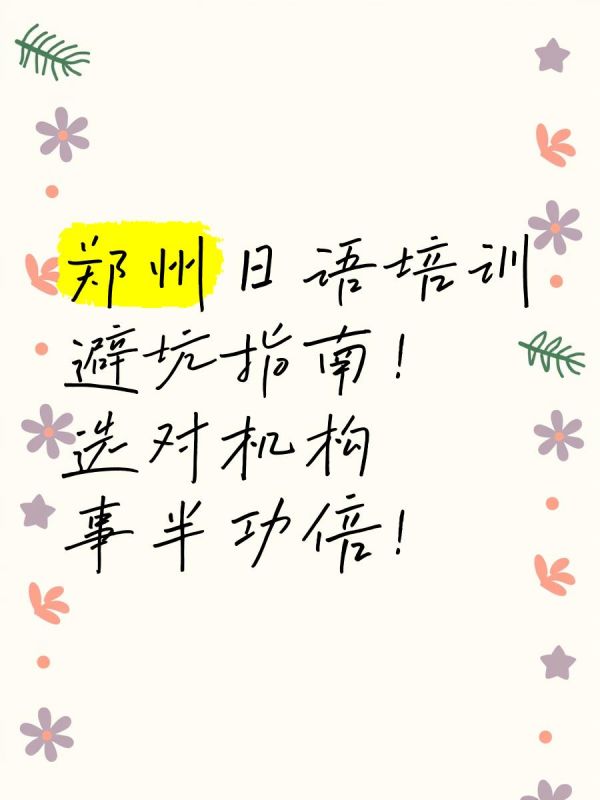 郑州日语培训
避坑指南！
选对机构
事半功倍！